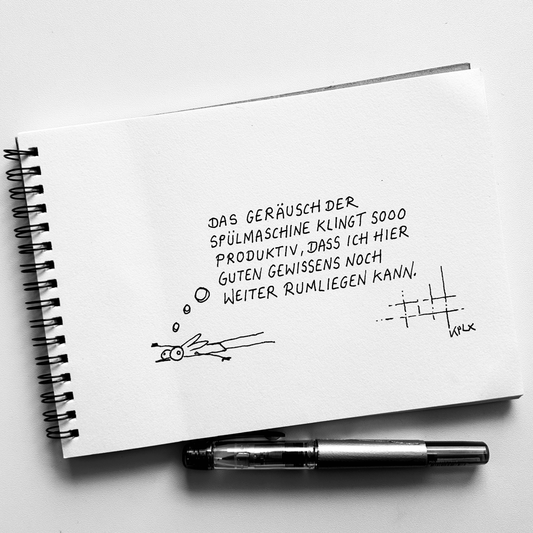 DAS GERÄUSCH DER
SPÜLMASCHINE KLINGT SOOO
PRODUKTIV, DASS ICH HIER
GUTEN GEWISSENS NOCH
WEITER RUMLIEGEN KANN.